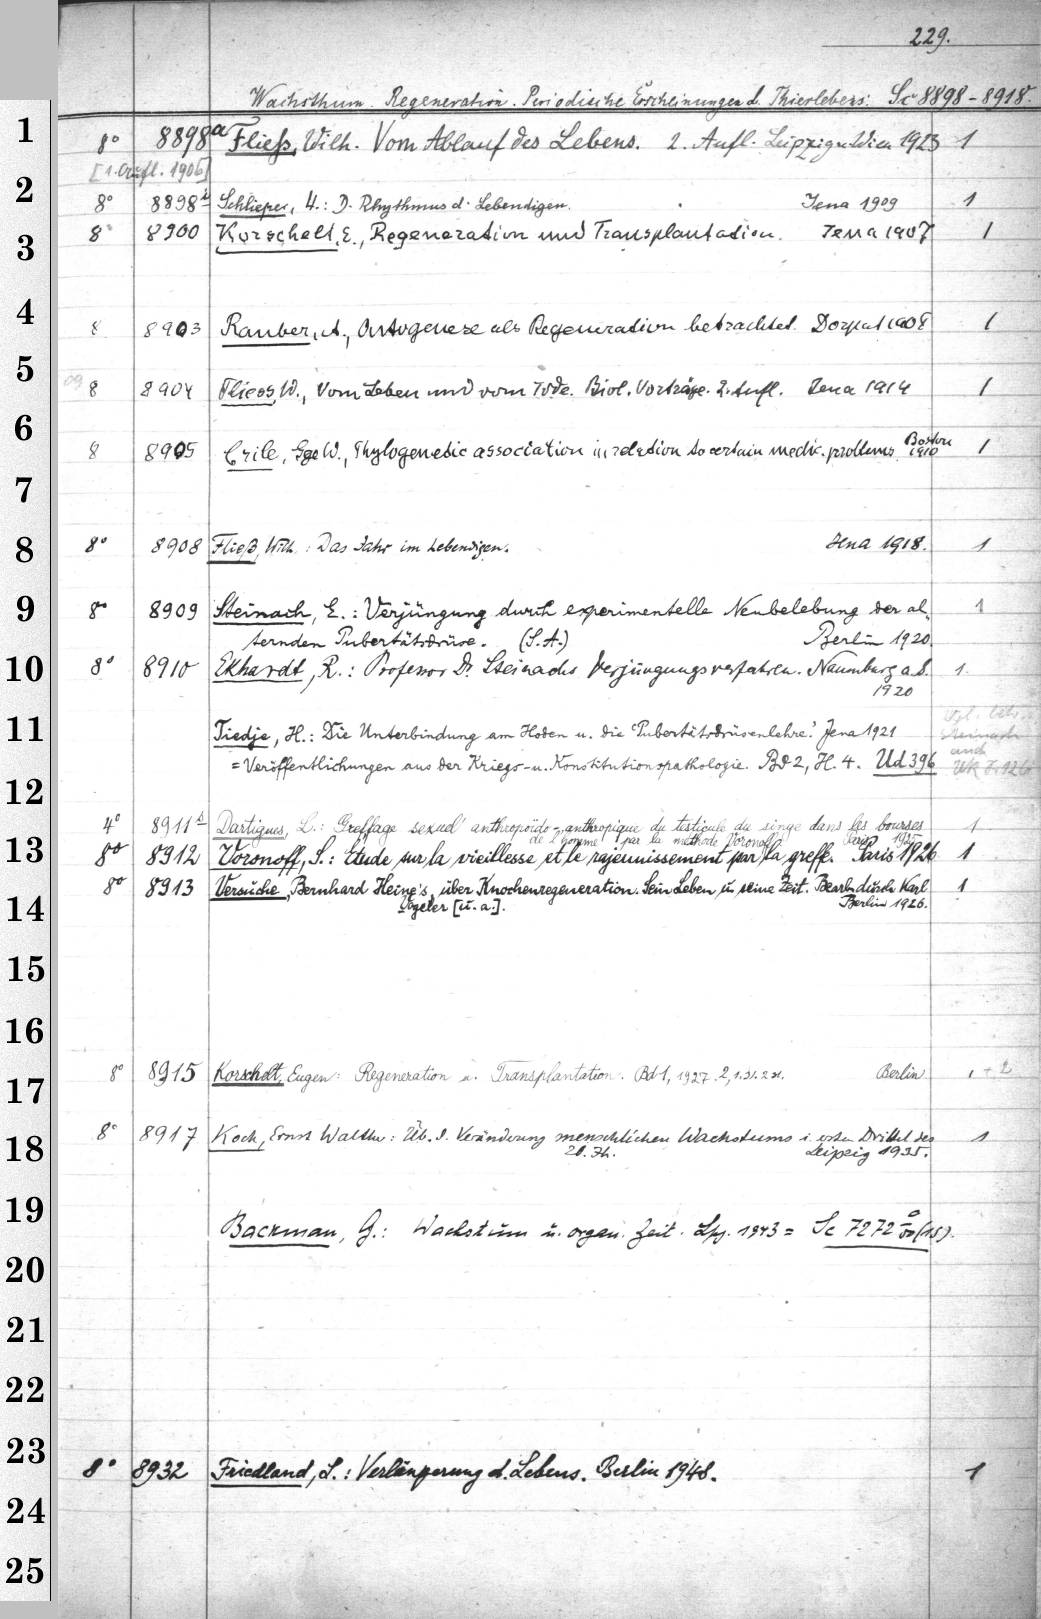 229.
Wachsthum. Regeneration. Periodische Erscheinungen d. Thierlebens: Sc 8898-8918.
1
8° 8898a Fließ, Wilh. Vom Ablauf des Lebens. 2. Aufl. Leipzig u Wien 1923 1
[1. Aufl. 1906]
2
8° 8898 Schlieper, H.: D. Rhythmus d. Lebendigen. Jena 1909 1
8° 8900 Korschelt, E., Regeneration und Transplantation. Jena 1907 1
3
4
8 8903 Rauber, A., Ontogenese als Regeneration betrachtet. Dorpat 1908 1
5
8 8904 Fliess, W., Vom Leben und vom Tode. Biol. Vorträge. 2. Aufl. Jena 1914 1
6
8 8905 Crile, Geo W., Phylogenetic association in relation to certain medic. problems. Boston 1910 1
7
8
8° 8908 Fließ, Wilh.: Das Jahr im Lebendigen. Jena 1918. 1
9
8° 8909 Steinach, E.: Verjüngung durch experimentelle Neubelebung der al-
ternden Pubertätsdrüse. (S.A.) Berlin 1920.
10
8° 8910 Ekhardt, R.: Professor Dr. Steinachs Verjüngungsverfahren. Naumburg a.S. 1.
1920
11
Tiedje, H.: Die Unterbindung am Hoden u. die "Pubertätsdrüsenlehre". Jena 1921
= Veröffentlichungen aus der Kriegs- u. Konstitutionspathologie. Bd 2, H. 4. Ud 396
12
4° 8911 Dartigues, L.: Greffage sexuel anthropoïdo-anthropique du testicule du singe dans les bourses 1
de l'homme par la méthode Voronoff Paris 1925
13
8° 8912 Voronoff, S.: Étude sur la vieillesse et le rajeunissement par la greffe. Paris 1926 1
8° 8913 Versuche, Bernhard Heine's, über Knochenregeneration. Sein Leben u. seine Zeit. Bearb. durch Karl 1
14
Vogeler [u. a.]. Berlin 1926.
15
16
8° 8915 Korschelt, Eugen: Regeneration u. Transplantation. Bd 1, 1927. 2, 1. 31. 2 31. Berlin 1 + 2
17
8° 8917 Koch, Ernst Walther: Üb. d. Veränderung menschlichen Wachstums i. ersten Drittel des 1
18
20. Jh. Leipzig 1935.
19
Backman, G.: Wachstum u. organ. Zeit. Lpz. 1943 = Sc 7272 (15).
20
21
22
23
8° 8932 Friedland, L.: Verlängerung d. Lebens. Berlin 1948. 1
24
25